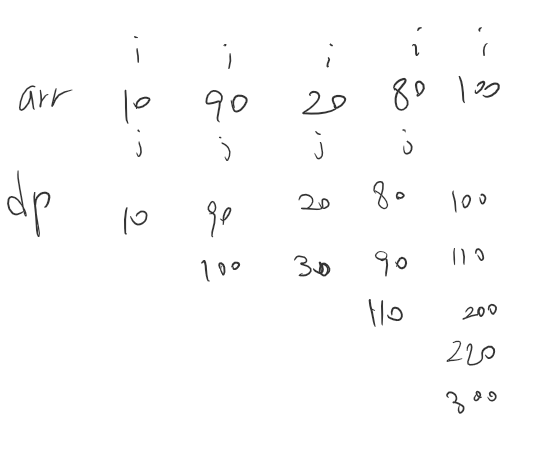 i i i i i
arr 10 90 20 80 100
j j j j
dp 10 90 20 80 100
100 30 90 110
110 200
220
300